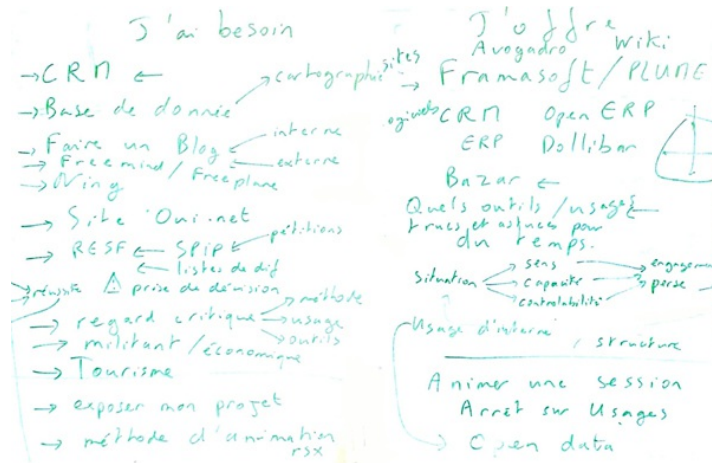 J'ai besoin
→ CRM ←
→ Base de donnée → cartographie
→ Faire un Blog ← interne
→ Freemind / Freeplane ← externe
→ Ning
→ Site Oui.net
→ RESF ← SPIP ← pétitions
← listes de dif
→ réussite ⚠ prise de décision
→ regard critique → méthode
→ usage
→ outils
→ militant / économique
→ Tourisme
→ exposer mon projet
→ méthode d'animation
rsx
J'offre
Avogadro Wiki
sites → Framasoft / PLUME
logiciels CRM Open ERP
ERP Dollibar
Bazar ←
Quels outils / usages ←
trucs et astuces pour
du temps.
Situation → sens → engagement
→ capacité → perse
→ controlabilité
Usage d'interne
/ structure
Animer une session
Arrêt sur Usages
→ Open data